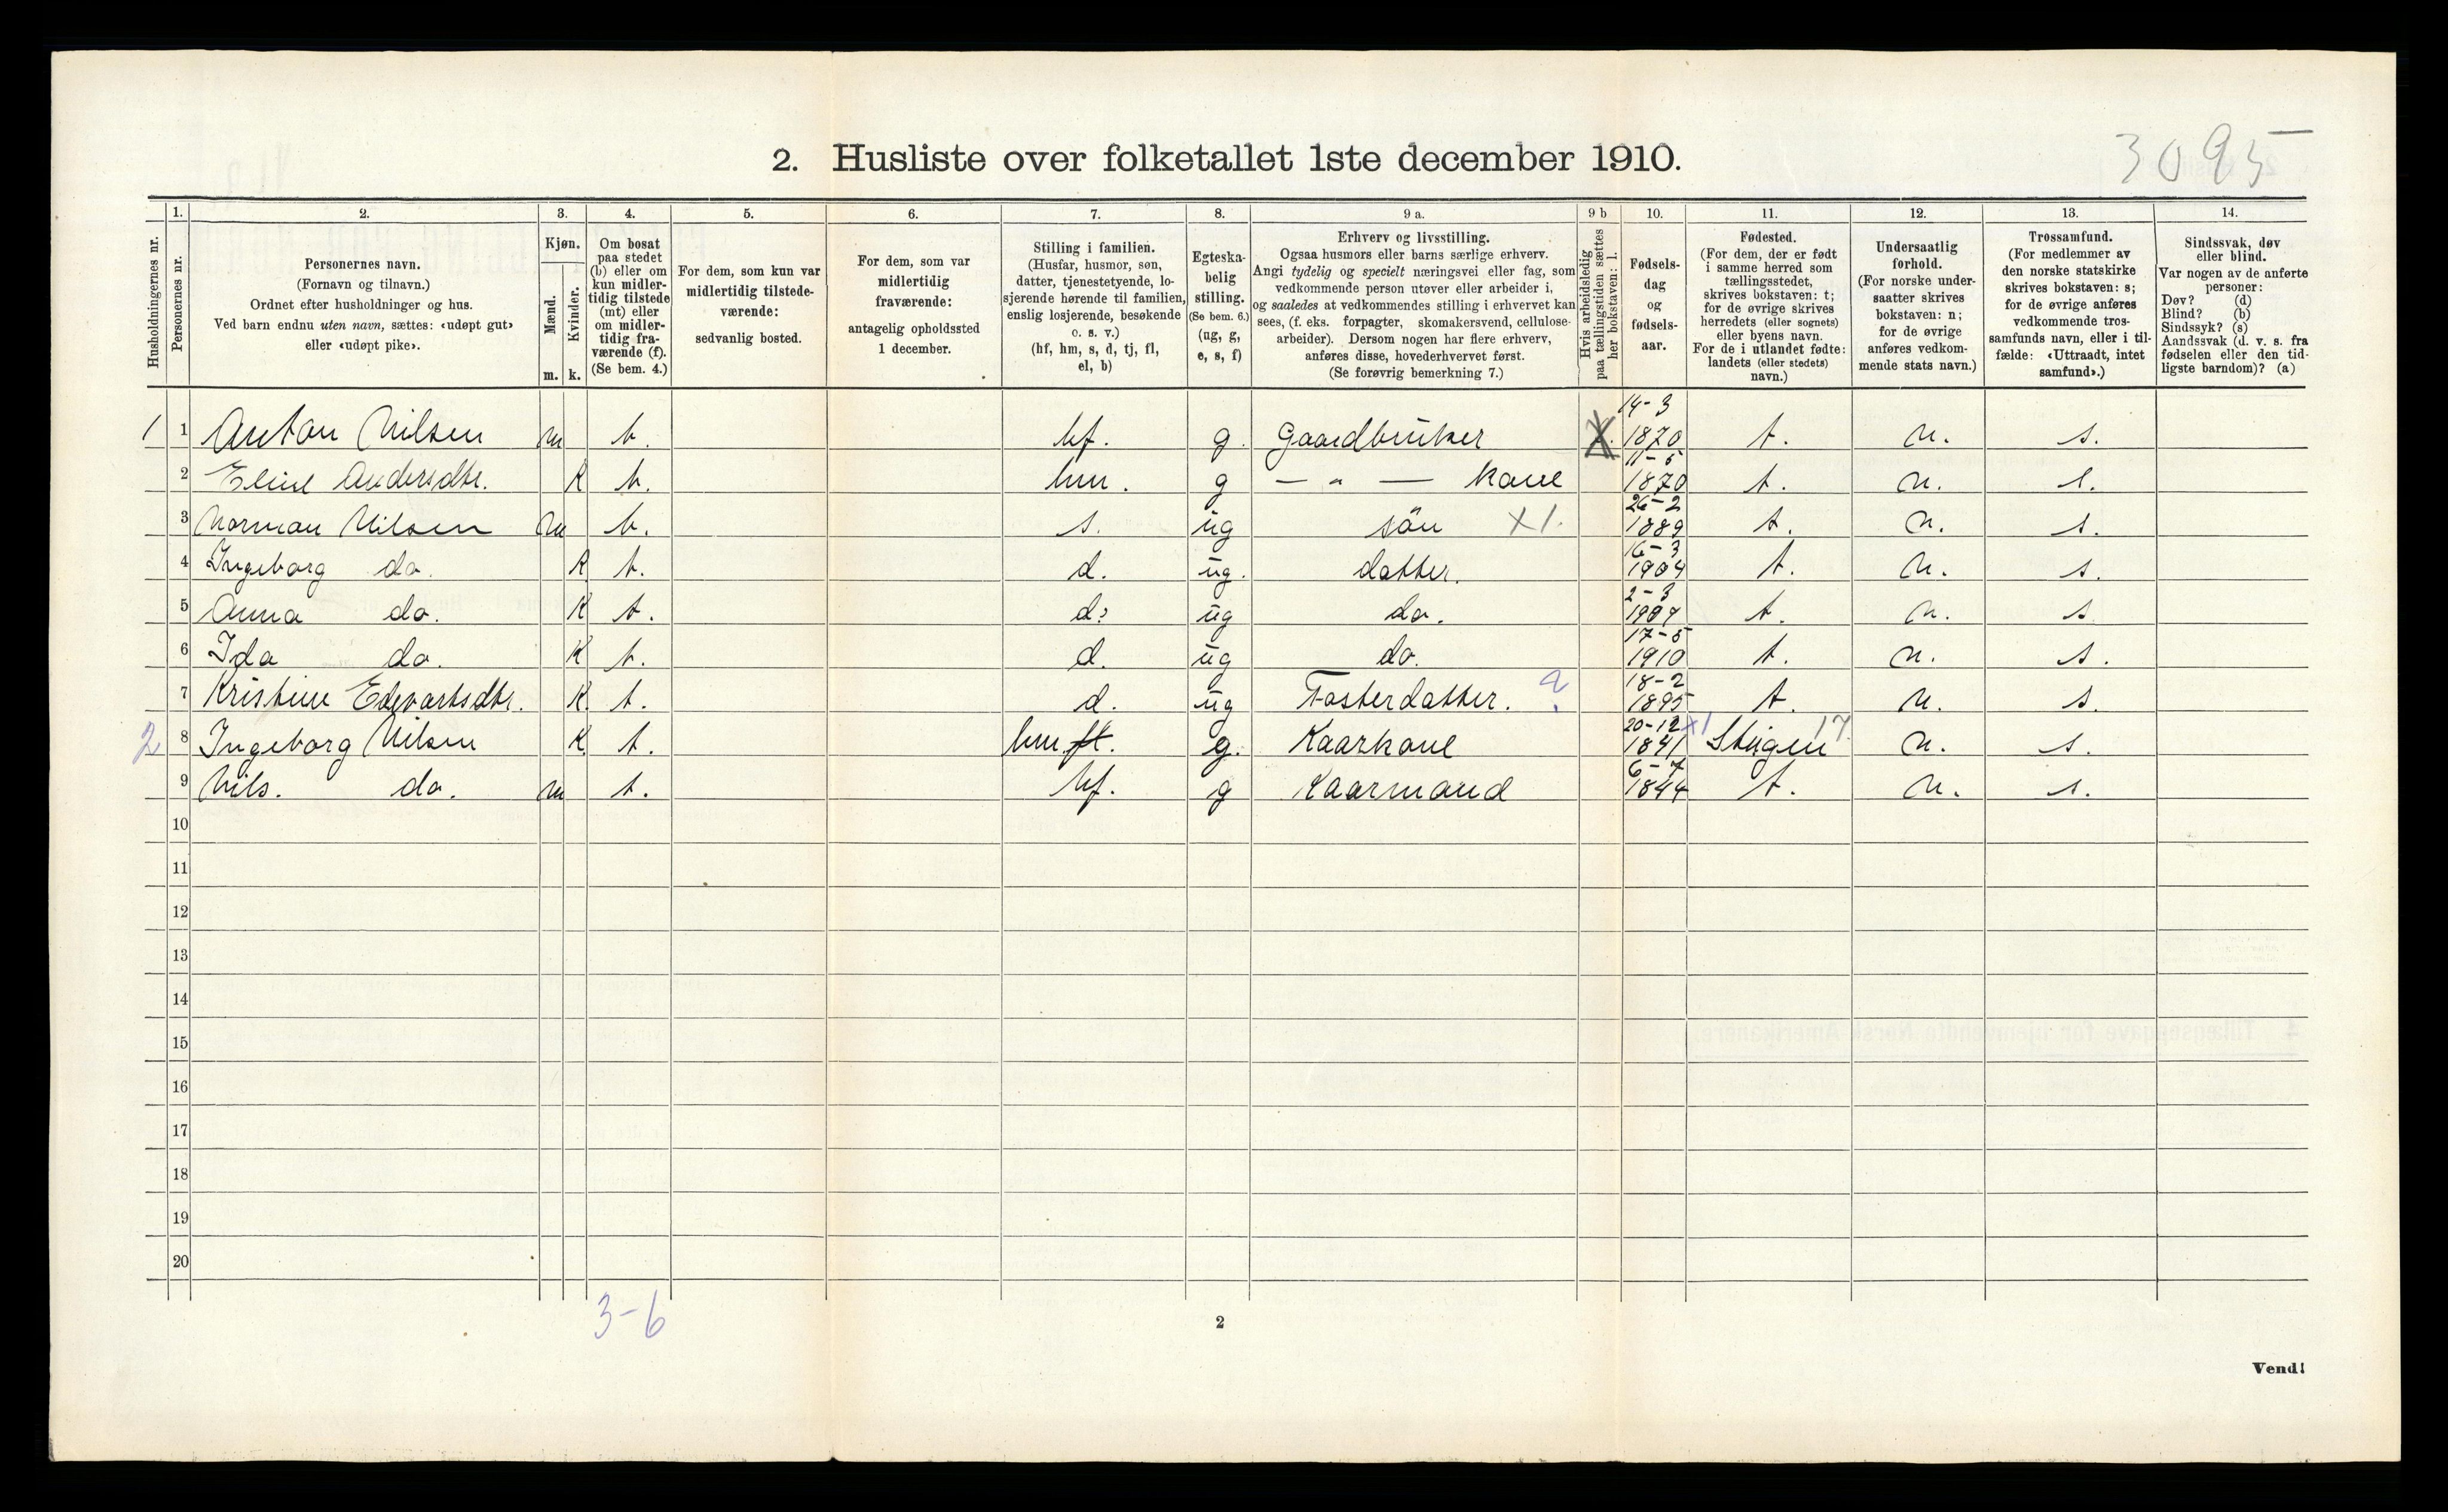 3095
2. Husliste over folketallet 1ste december 1910.
1. 2. 3. 4. 5. 6. 7. 8. 9 a. 9 b 10. 11. 12. 13. 14.
Husholdningernes nr.
Personernes nr.
Personernes navn.
(Fornavn og tilnavn.)
Ordnet efter husholdninger og hus.
Ved barn endnu uten navn, sættes: «udøpt gut»
eller «udøpt pike».
Kjøn.
Mænd.
Kvinder.
m. k.
Om bosat
paa stedet
(b) eller om
kun midler-
tidig tilstede
(mt) eller
om midler-
tidig fra-
værende (f).
(Se bem. 4.)
For dem, som kun var
midlertidig tilstede-
værende:
sedvanlig bosted.
For dem, som var
midlertidig
fraværende:
antagelig opholdssted
1 december.
Stilling i familien.
(Husfar, husmor, søn,
datter, tjenestetyende, lo-
sjerende hørende til familien,
enslig losjerende, besøkende
o. s. v.)
(hf, hm, s, d, tj, fl,
el, b)
Egteska-
belig
stilling.
(Se bem. 6.)
(ug, g,
e, s, f)
Erhverv og livsstilling.
Ogsaa husmors eller barns særlige erhverv.
Angi tydelig og specielt næringsvei eller fag, som
vedkommende person utøver eller arbeider i,
og saaledes at vedkommendes stilling i erhvervet kan
sees, (f. eks. forpagter, skomakersvend, cellulose-
arbeider). Dersom nogen har flere erhverv,
anføres disse, hovederhvervet først.
(Se forøvrig bemerkning 7.)
Hvis arbeidsledig
paa tællingstiden sættes
her bokstaven: l.
Fødsels-
dag
og
fødsels-
aar.
Fødested.
(For dem, der er født
i samme herred som
tællingsstedet,
skrives bokstaven: t;
for de øvrige skrives
herredets (eller sognets)
eller byens navn.
For de i utlandet fødte:
landets (eller stedets)
navn.)
Undersaatlig
forhold.
(For norske under-
saatter skrives
bokstaven: n;
for de øvrige
anføres vedkom-
mende stats navn.)
Trossamfund.
(For medlemmer av
den norske statskirke
skrives bokstaven: s;
for de øvrige anføres
vedkommende tros-
samfunds navn, eller i til-
fælde: «Uttraadt, intet
samfund».)
Sindssvak, døv
eller blind.
Var nogen av de anførte
personer:
Døv? (d)
Blind? (b)
Sindssyk? (s)
Aandssvak (d. v. s. fra
fødselen eller den tid-
ligste barndom)? (a)
1 1 Anton Nilsen m b. hf. g. Gaardbruker 14-3 1870 t. n. s.
2 Eline Andersdtr. K b. hm. g — " — Kone 11-5 1870 t. n. s.
3 Norman Nilsen m b. s. ug sön X1. 26-2 1889 t. n. s.
4 Ingeborg do. K b. d. ug. datter. 16-3 1904 t. n. s.
5 Anna do. K t. d. ug do. 2-3 1907 t. n. s
6 Ida do. K b. d. ug do. 17-5 1910 t. n. s.
7 Kristine Edevartsdtr. K. t. d. ug Fosterdatter. ? 18-2 1895 t. n. s.
2 8 Ingeborg Nilsen K. t. hm fl. g. Kaarkone 20-12 1841 X1 Steigen 17. n. s.
9 Nils. do. m t. hf. g Kaarmand 6-7 1844 t. n. s.
10
11
12
13
14
15
16
17
18
19
20
3-6
2
Vend!